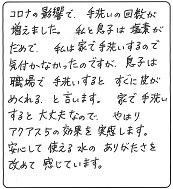 コロナの影響で、手洗いの回数が
増えました。私と息子は塩素が
だめで、私は家で手洗いするので
気付かなかったのですが、息子は
職場で手洗いすると すぐに皮が
めくれる、と言います。家で手洗い
すると大丈夫なので、やはり
アクアスデの効果を実感します。
安心して使える水のありがたさを
改めて感じています。